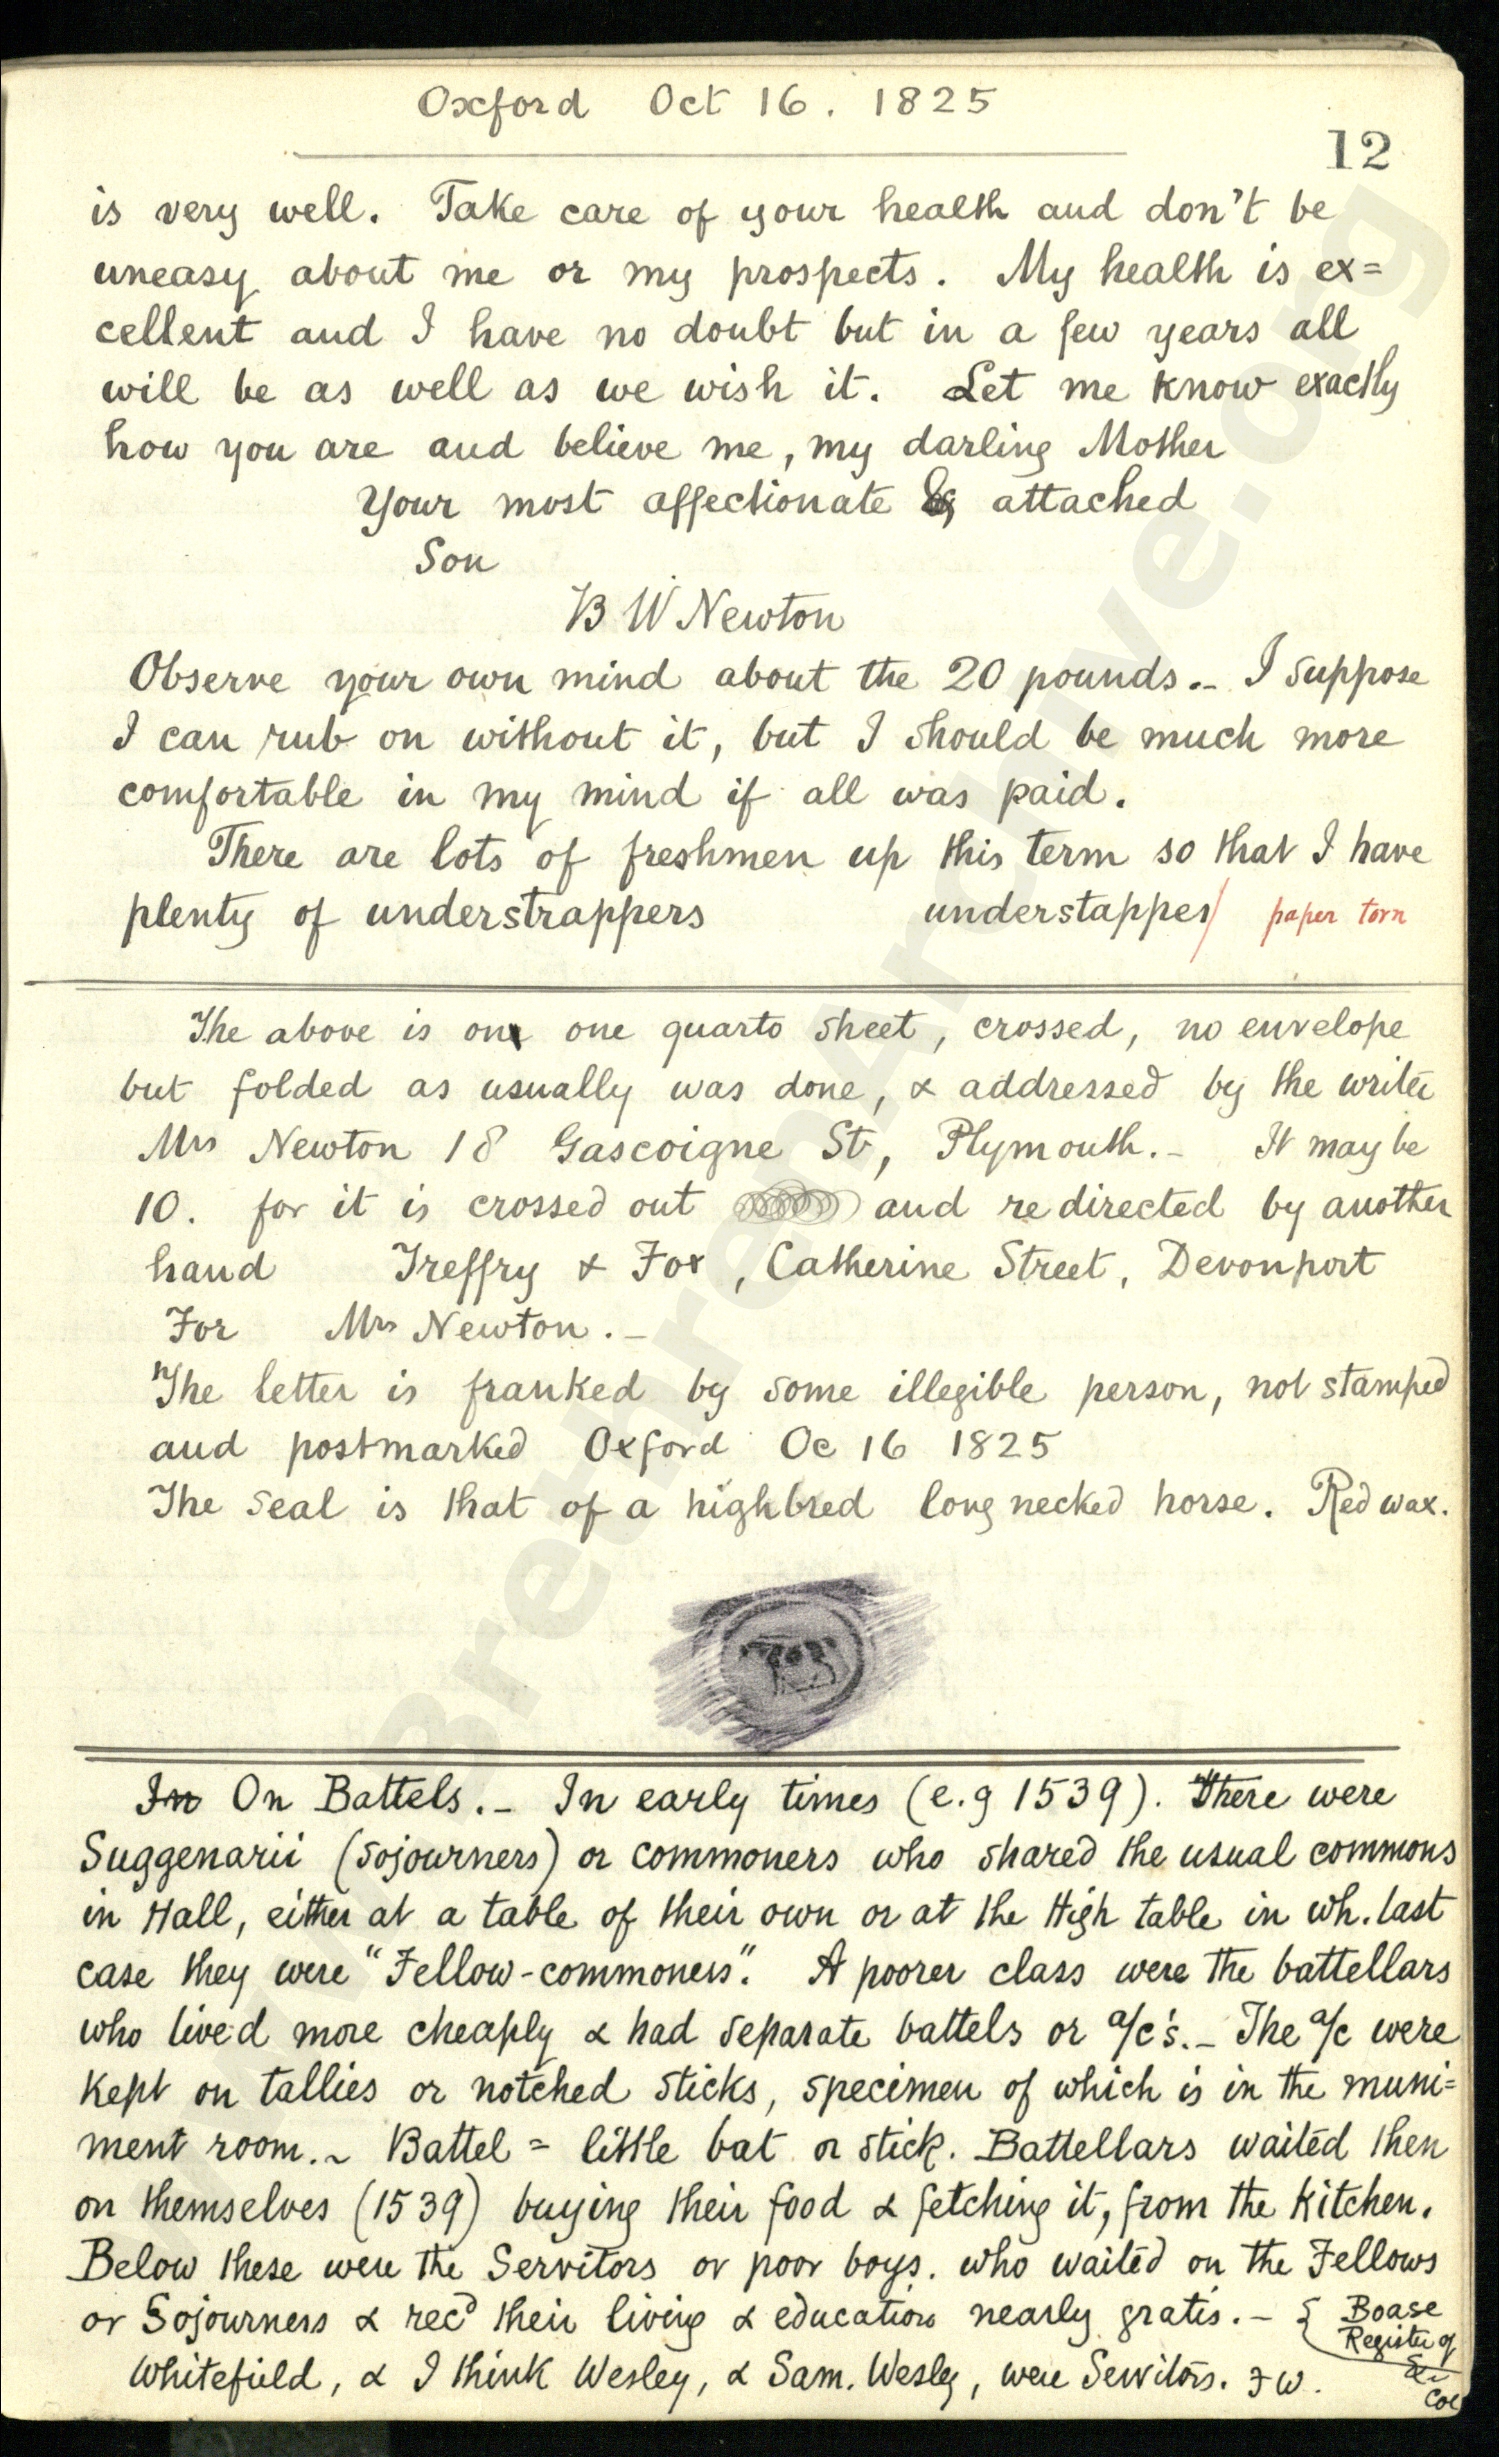 Oxford Oct 16. 1825
12
is very well. Take care of your health and don't be
uneasy about me or my prospects. My health is ex=
cellent and I have no doubt but in a few years all
will be as well as we wish it. Let me know exactly
how you are and believe me, my darling Mother
Your most affectionate & attached
Son
B W Newton
Observe your own mind about the 20 pounds.- I suppose
I can rub on without it, but I should be much more
comfortable in my mind if all was paid.
There are lots of freshmen up this term so that I have
plenty of understrappers understappes/ paper torn
The above is on one quarto sheet, crossed, no envelope
but folded as usually was done, & addressed by the writer
Mrs Newton 18 Gascoigne St, Plymouth.- It may be
10. for it is crossed out and redirected by another
hand Treffry & Fox, Catherine Street, Devonport
For Mrs Newton.-
The letter is franked by some illegible person, not stamped
and postmarked Oxford Oc 16 1825
The seal is that of a highbred long necked horse. Red wax.
In On Battels.- In early times (e.g 1539). There were
Suggenarii (sojourners) or commoners who shared the usual commons
in Hall, either at a table of their own or at the High table in wh. last
case they were "Fellow-commoners". A poorer class were the battellars
who lived more cheaply & had separate battels or a/c's.- The a/c were
kept on tallies or notched sticks, specimen of which is in the muni=
ment room.~ Battel = little bat or stick. Battellars waited then
on themselves (1539) buying their food & fetching it, from the Kitchen.
Below these were the Servitors or poor boys. who waited on the Fellows
or Sojourners & recd their living & education nearly gratis.- { Boase
Register of
Whitefield, & I think Wesley, & Sam. Wesley, were Servitors. F W.
Col
BrethrenArchive.org